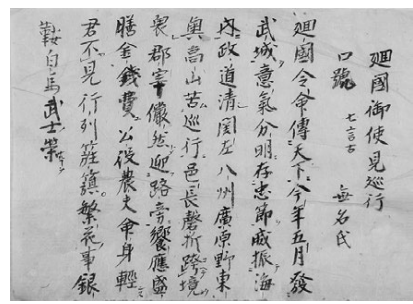 廻國御使見巡行
口號 七言古 無名氏
廻國令命傳天下今年五月發
武城意氣分明存忠節威振海
内政道清関左八州廣原野東
奥高山苦巡行邑長磬折跨境
裏郡宰儼然迎路旁饗應盛
膳金錢費公役農夫命身輕
君不見行列莊旗繁花事銀
鞍白馬武士榮